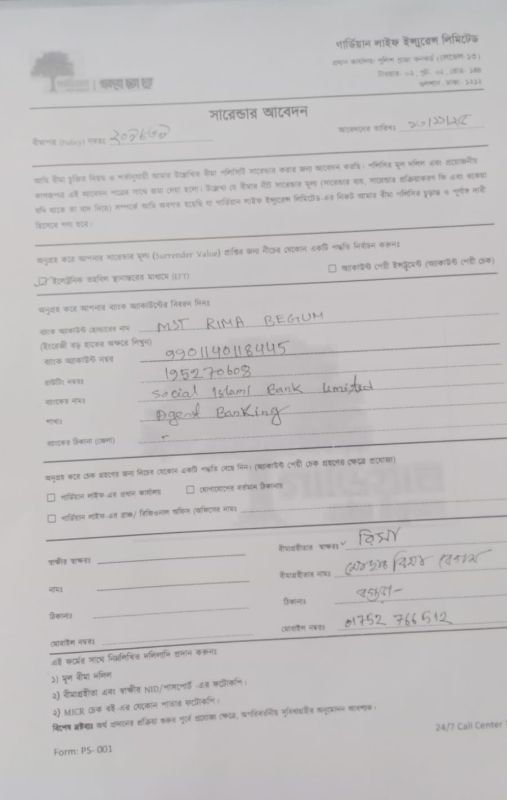 গার্ডিয়ান লাইফ ইন্স্যুরেন্স লিমিটেড
প্রধান কার্যালয়: পুলিশ প্লাজা কনকর্ড (লেভেল ১৩)
টাওয়ার- ০২, প্লট- ০২, রোড- ১৪৪
গুলশান, ঢাকা- ১২১২
সারেন্ডার আবেদন
বীমাপত্র (Policy) নম্বরঃ
আবেদনের তারিখঃ
আমি বীমা চুক্তির নিয়ম ও শর্তানুযায়ী আমার উল্লেখিত বীমা পলিসিটি সারেন্ডার করার জন্য আবেদন করছি। পলিসির মূল দলিল এবং প্রয়োজনীয়
কাগজপত্র এই আবেদন পত্রের সাথে জমা দেয়া হলো। উল্লেখ্য যে বীমার নীট সারেন্ডার মূল্য (সারেন্ডার ব্যয়, সারেন্ডার প্রক্রিয়াকরণ ফি এবং বকেয়া
যদি থাকে তা বাদ দিয়ে) সম্পর্কে আমি অবগত হয়েছি যা গার্ডিয়ান লাইফ ইন্স্যুরেন্স লিমিটেড-এর নিকট আমার বীমা পলিসির চূড়ান্ত ও পূর্ণাঙ্গ দাবী
হিসেবে গণ্য হবে।
অনুগ্রহ করে আপনার সারেন্ডার মূল্য (Surrender Value) প্রাপ্তির জন্য নীচের যেকোন একটি পদ্ধতি নির্বাচন করুনঃ
ইলেক্ট্রনিক তহবিল স্থানান্তরের মাধ্যমে (EFT)
অ্যাকাউন্ট পেয়ী ইন্সট্রুমেন্ট (অ্যাকাউন্ট পেয়ী চেক)
অনুগ্রহ করে আপনার ব্যাংক অ্যাকাউন্টের বিবরণ দিনঃ
ব্যাংক অ্যাকাউন্ট হোল্ডারের নাম MST RIMA BEGUM
(ইংরেজী বড় হাতের অক্ষরে লিখুন)
ব্যাংক অ্যাকাউন্ট নম্বর 9901140118445
রাউটিং নম্বরঃ 195270608
ব্যাংকের নামঃ Social Islami Bank Limited
শাখাঃ Agent Banking
ব্যাংকের ঠিকানা (জেলা)
অনুগ্রহ করে চেক গ্রহণের জন্য নিচের যেকোন একটি পদ্ধতি বেছে নিন। (অ্যাকাউন্ট পেয়ী চেক গ্রহণের ক্ষেত্রে প্রযোজ্য)
গার্ডিয়ান লাইফ এর প্রধান কার্যালয়
যোগাযোগের বর্তমান ঠিকানায়
গার্ডিয়ান লাইফ-এর ব্রাঞ্চ/ রিজিওনাল অফিস (অফিসের নামঃ
স্বাক্ষীর স্বাক্ষরঃ
বীমাগ্রহীতার স্বাক্ষরঃ রিমা
নামঃ
বীমাগ্রহীতার নামঃ মোছাঃ রিমা বেগম
ঠিকানাঃ
ঠিকানাঃ
মোবাইল নম্বরঃ
মোবাইল নম্বরঃ 01752 766512
এই ফর্মের সাথে নিম্নলিখিত দলিলাদি প্রদান করুনঃ
১) মূল বীমা দলিল
২) বীমাগ্রহীতা এবং স্বাক্ষীর NID/পাসপোর্ট -এর ফটোকপি।
২) MICR চেক বই-এর যেকোন পাতার ফটোকপি।
বিশেষ দ্রষ্টব্যঃ অর্থ প্রদানের প্রক্রিয়া শুরুর পূর্বে প্রযোজ্য ক্ষেত্রে, অপরিবর্তনীয় সুবিধাগ্রহীর অনুমোদন আবশ্যক।
24/7 Call Center
Form: PS- 001